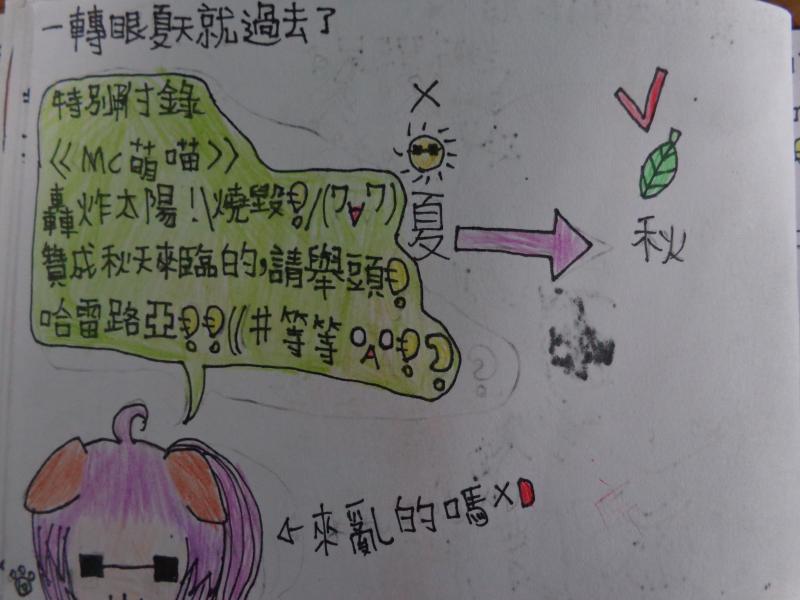 一轉眼夏天就過去了
特別附錄
《《Mc萌喵》》
轟炸太陽！\燒毀！/(ワvワ)
贊成秋天來臨的，請舉頭！
哈雷路亞！！((#等等OAO！？
×
夏
秋
←來亂的嗎XD